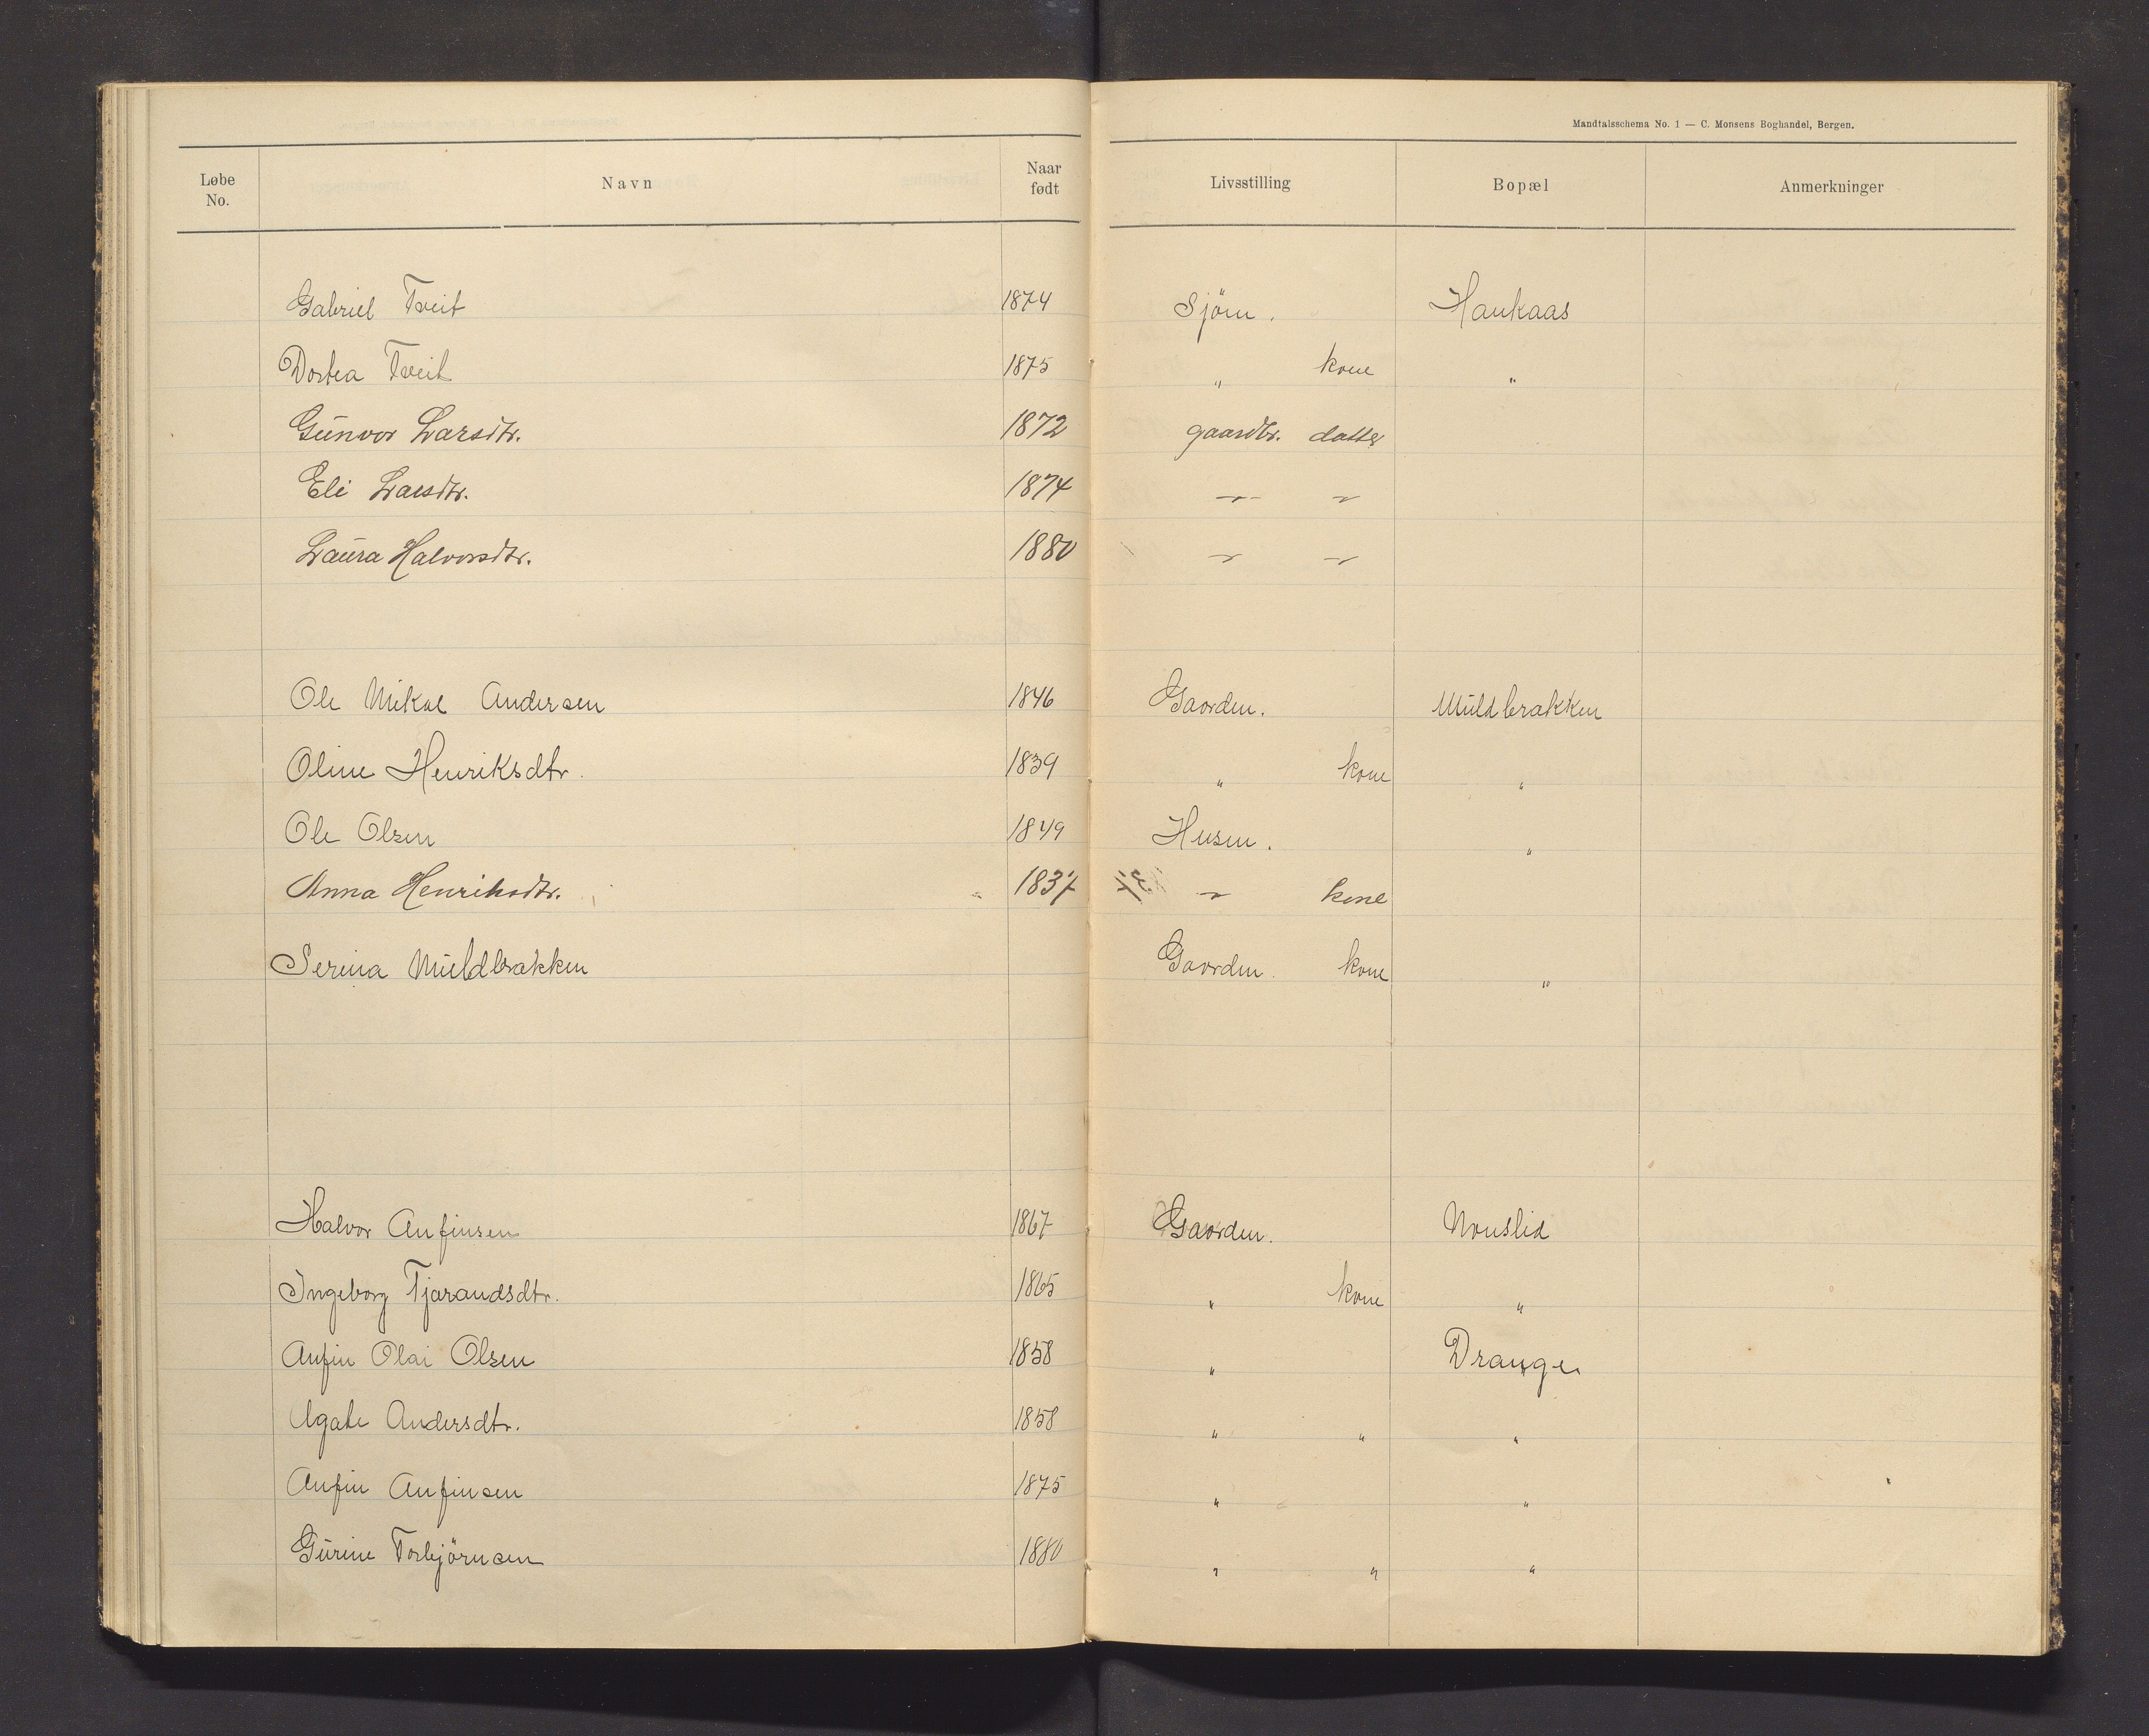 Mandtalsschema No. 1 — C. Monsens Boghandel, Bergen.
Løbe No. Navn Naar født Livsstilling Bopæl Anmerkninger
Gabriel Tveit 1874 Sjöm. Haukaas
Dortea Tveit 1875 " kone "
Gunvor Larsdtr. 1872 gaardbr. datter
Eli Larsdtr. 1874 — " — "
Laura Halvorsdtr. 1880 " "
Ole Mikal Andersen 1846 Gaarden. Muldbrækken
Oline Henriksdtr. 1839 " kone "
Ole Olsen 1849 Husm. "
Anna Henriksdtr. 1837 " kone
Serina Muldbrækken Gaardm. kone "
Halvor Anfinsen 1867 Gaardm. Nonslid
Ingeborg Tjerandsdtr. 1865 " kone "
Anfin Olai Olsen 1858 " Drange
Agate Andersdtr. 1858 " " "
Anfin Anfinsen 1875 " "
Gurine Torbjörnsen 1880 " " "